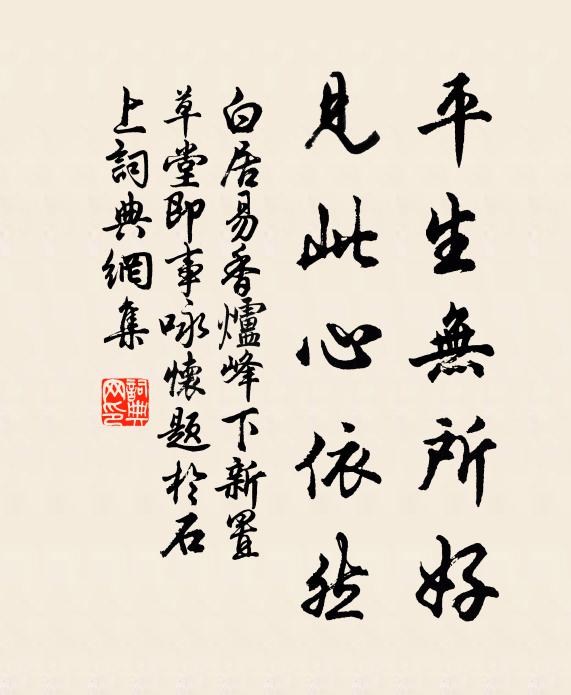 平生無所好
見此心依然
白居易香爐峰下新置
草堂即事咏懷題於石
上詞典網集
詞典网印